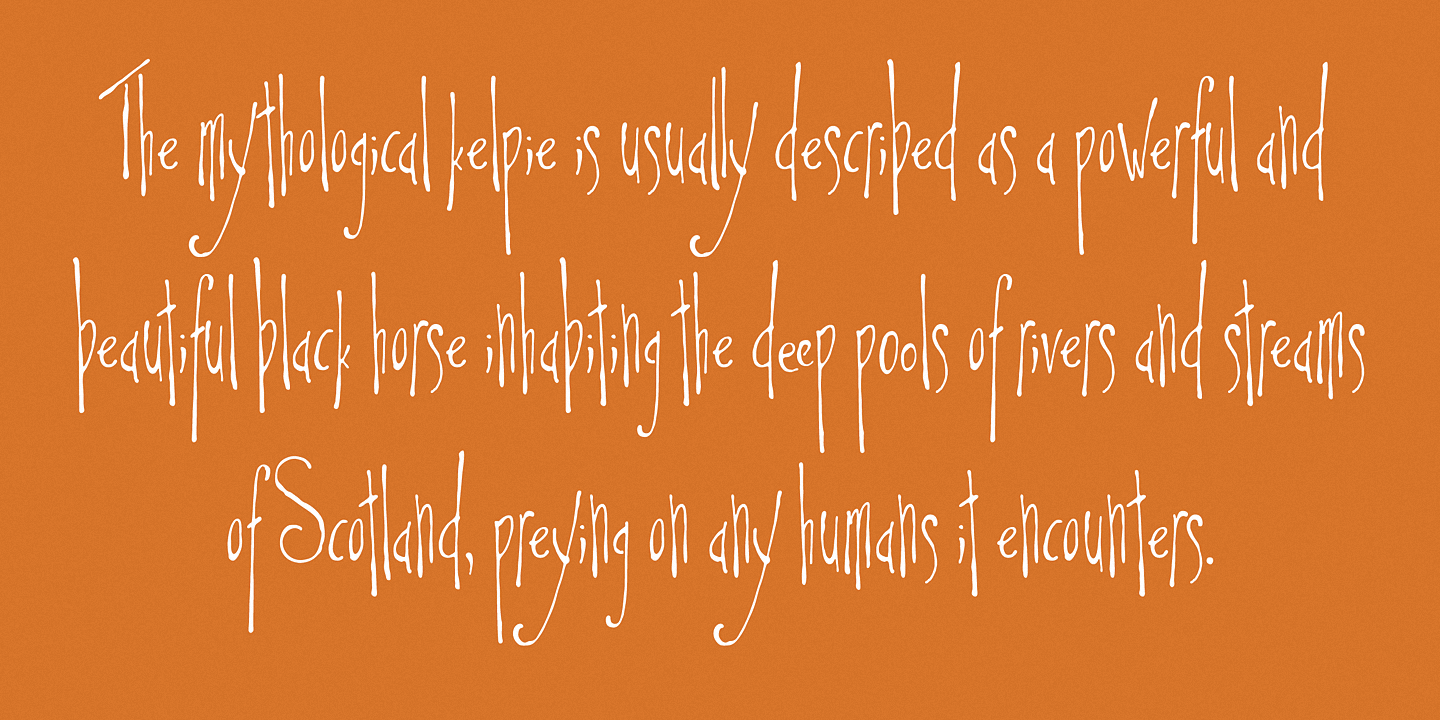 The mythological kelpie is usually described as a powerful and
beautiful black horse inhabiting the deep pools of rivers and streams
of Scotland, preying on any humans it encounters.